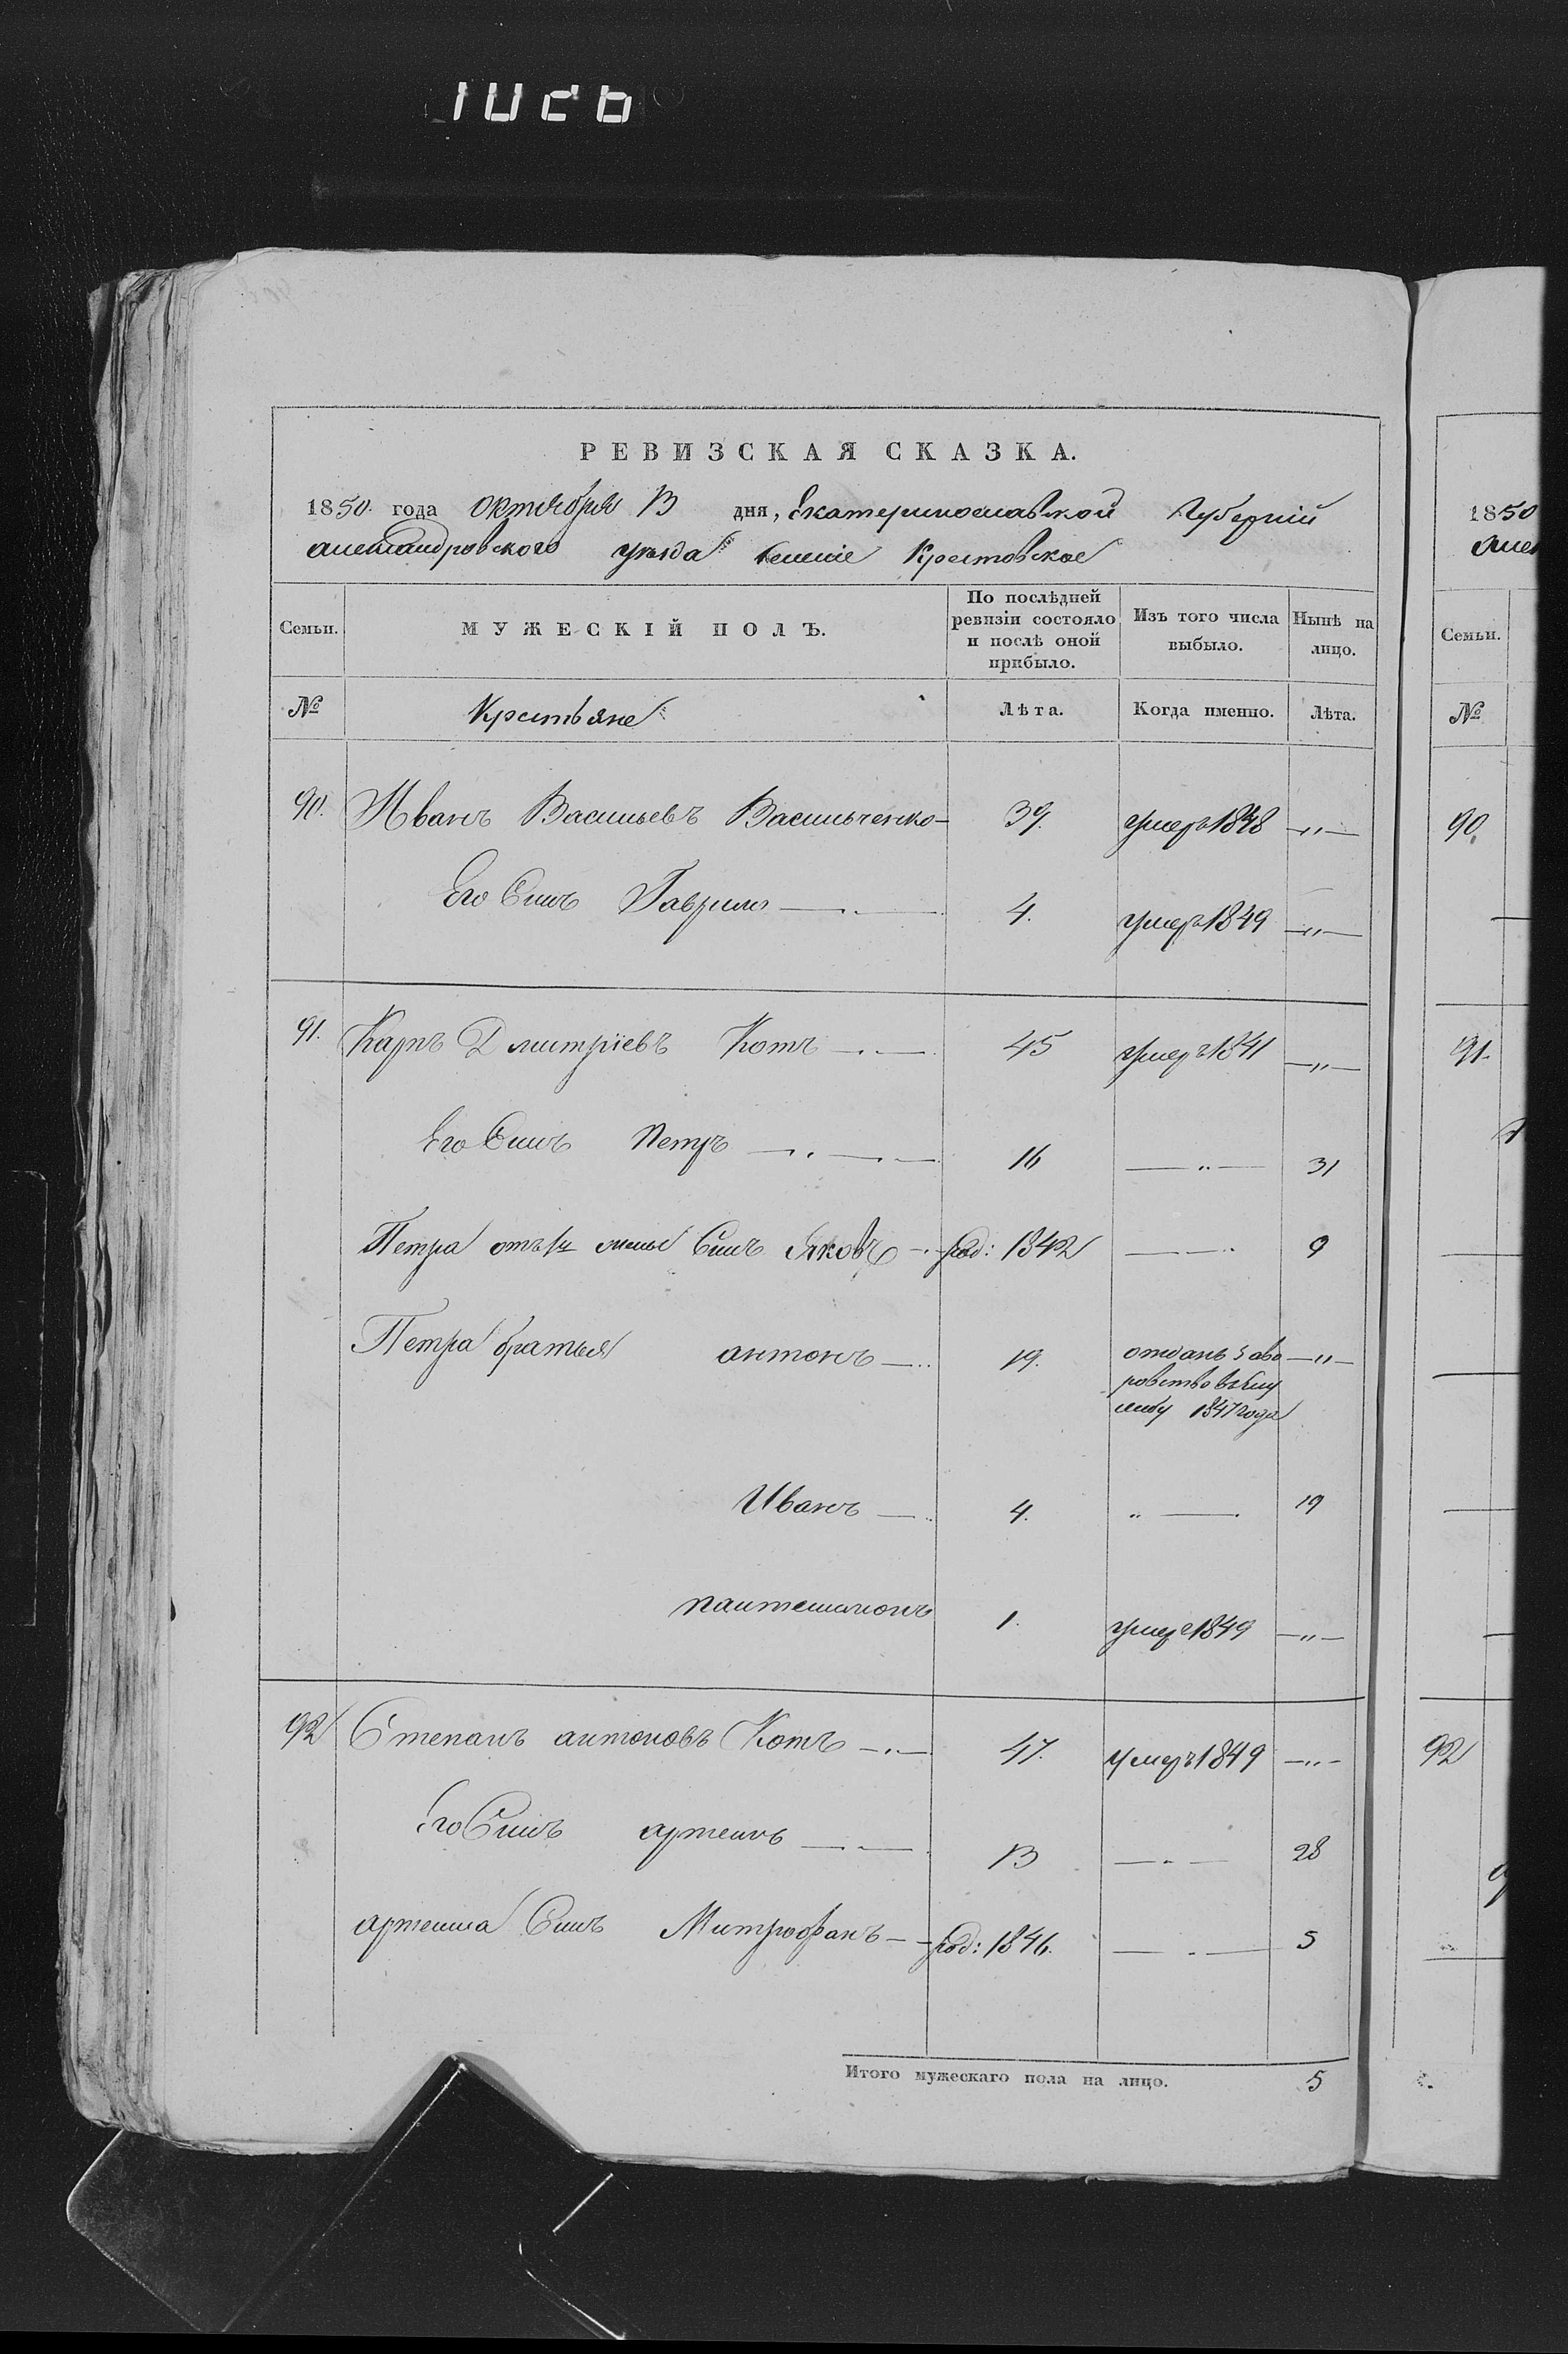 РЕВИЗСКАЯ СКАЗКА.
1850 года октября 13 дня, Екатеринославской Губерніи
александровского уезда Селеніе Крестовское
Семьи.
МУЖЕСКІЙ ПОЛЪ.
По послѣдней ревизіи состояло и послѣ оной прибыло.
Изъ того числа выбыло.
Нынѣ на лицо.
№
Крестьяне
Лѣта.
Когда именно.
Лѣта.
90. Иванъ Васильевъ Васильченко 39. умеръ 1848 —„—
Его Сынъ Гаврило 4. умеръ 1849 —„—
91. Карпъ Дмитріевъ Котъ 45 умеръ 1841 —„—
Его Сынъ Петръ 16 —„— 31
Петра отъ 1й жены Сынъ Яковъ род: 1842 9
Петра братья антонъ 19. отданъ за во —„—
ровство въ
1847 года
Иванъ 4. „— 19
пантелимонъ 1. умеръ 1849 —„—
92 Степанъ антоновъ Котъ 47. умеръ 1849 —„—
Его Сынъ артемъ 13 —„— 28
артема Сынъ Митрофанъ род: 1846. 5
Итого мужескаго пола на лицо. 5
1850
Семьи.
№
90
91.
92